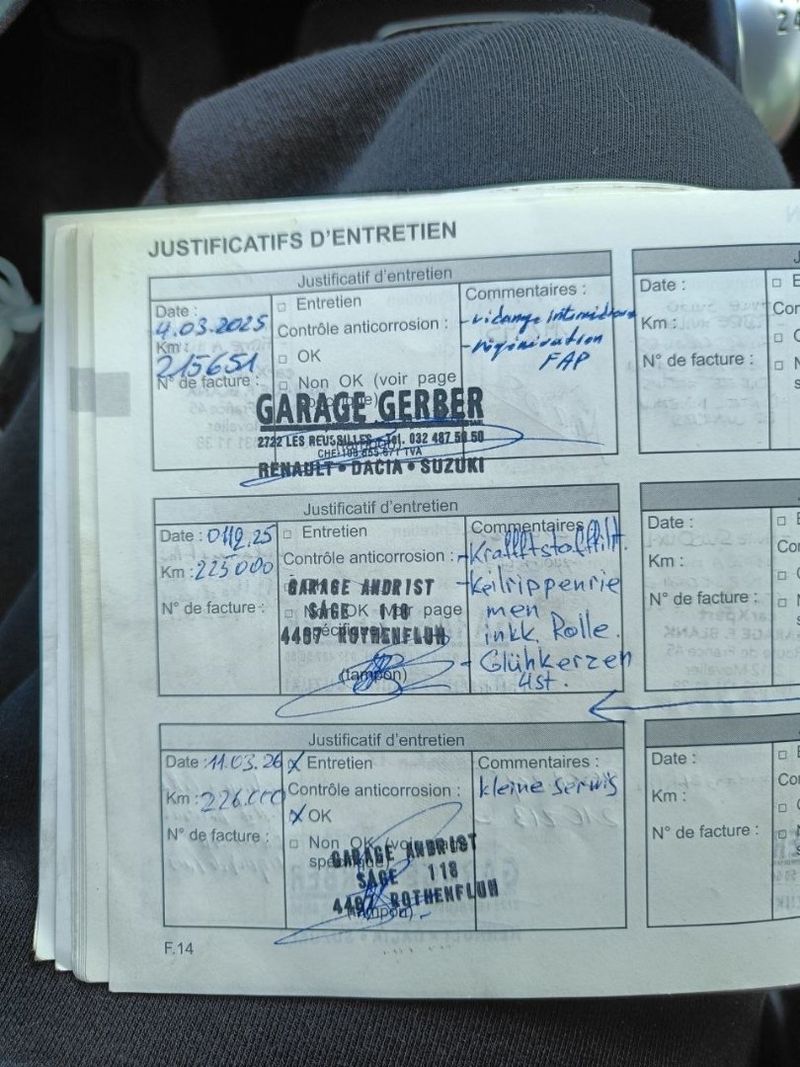 JUSTIFICATIFS D'ENTRETIEN
Justificatif d'entretien
Date :
4.03.2025
Km :
215651
N° de facture :
Entretien
Contrôle anticorrosion :
OK
Non OK (voir page
Commentaires :
- vidange intermédiaire
- régénération
FAP
GARAGE GERBER
2722 LES REUSSILLES • Tél. 032 487 50 50
RENAULT • DACIA • SUZUKI
Justificatif d'entretien
Date : 0112.25
Km : 225000
N° de facture :
Entretien
Contrôle anticorrosion :
OK (voir page
(tampon)
GARAGE ANDRIST
SAGE 118
4467 ROTHENFLUH
Commentaires :
- Kraftstofffilt.
- Keilrippenrie
men
inkl. Rolle.
- Glühkerzen
4st.
Justificatif d'entretien
Date : 11.03.26
Km : 226.000
N° de facture :
x Entretien
Contrôle anticorrosion :
x OK
Non OK (voir page
(tampon)
GARAGE ANDRIST
SAGE 118
4467 ROTHENFLUH
Commentaires :
kleine Serwis
F.14
Date :
Km :
N° de facture :
Date :
Km :
N° de facture :
Date :
Km :
N° de facture :